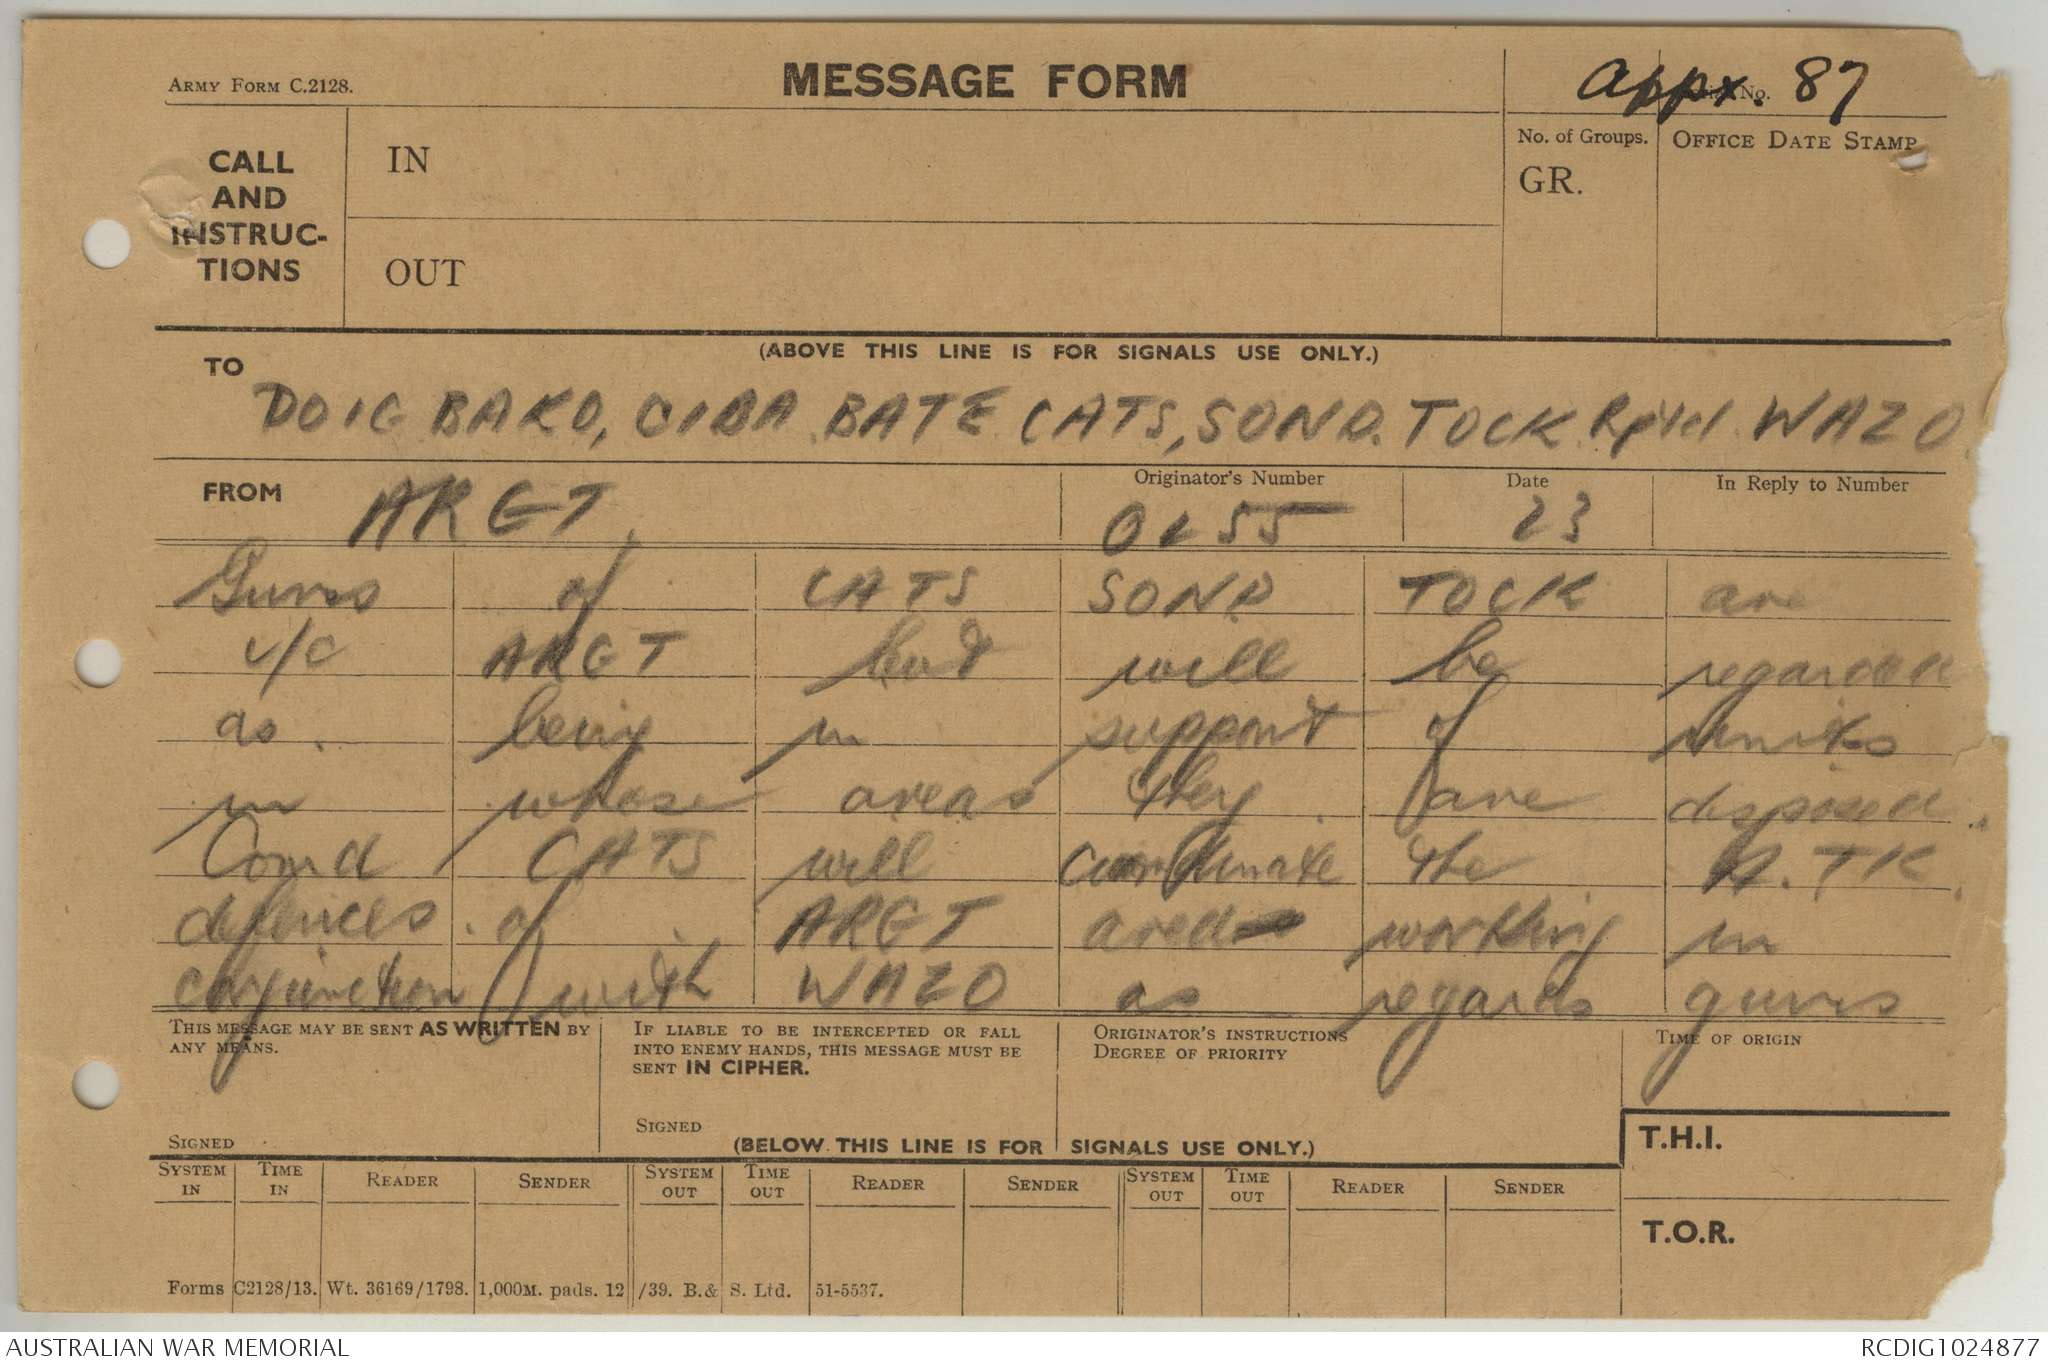 ARMY FORM C.2128.
MESSAGE FORM
Appx. 87
No.
CALL
AND
INSTRUC-
TIONS
IN
OUT
No. of Groups.
GR.
OFFICE DATE STAMP
(ABOVE THIS LINE IS FOR SIGNALS USE ONLY.)
TO
DOIG BAKO, CIBA BATE CATS, SOND. TOCK Rptd WAZO
FROM ARGT
Originator's Number
O255
Date
23
In Reply to Number
Guns of CATS SOND TOCK are
u/c ARGT but will be regarded
as being in support of units
in whose areas they are disposed.
Comd CATS will coordinate the A.TK.
defences of ARGT area working in
conjunction with WAZO as regards guns
THIS MESSAGE MAY BE SENT AS WRITTEN BY
ANY MEANS.
SIGNED
IF LIABLE TO BE INTERCEPTED OR FALL
INTO ENEMY HANDS, THIS MESSAGE MUST BE
SENT IN CIPHER.
SIGNED
ORIGINATOR'S INSTRUCTIONS
DEGREE OF PRIORITY
TIME OF ORIGIN
(BELOW THIS LINE IS FOR SIGNALS USE ONLY.)
T.H.I.
T.O.R.
SYSTEM IN TIME IN READER SENDER SYSTEM OUT TIME OUT READER SENDER SYSTEM OUT TIME OUT READER SENDER
Forms C2128/13. Wt. 36169/1798. 1,000M. pads. 12/39. B.& S. Ltd. 51-5537.
AUSTRALIAN WAR MEMORIAL
RCDIG1024877